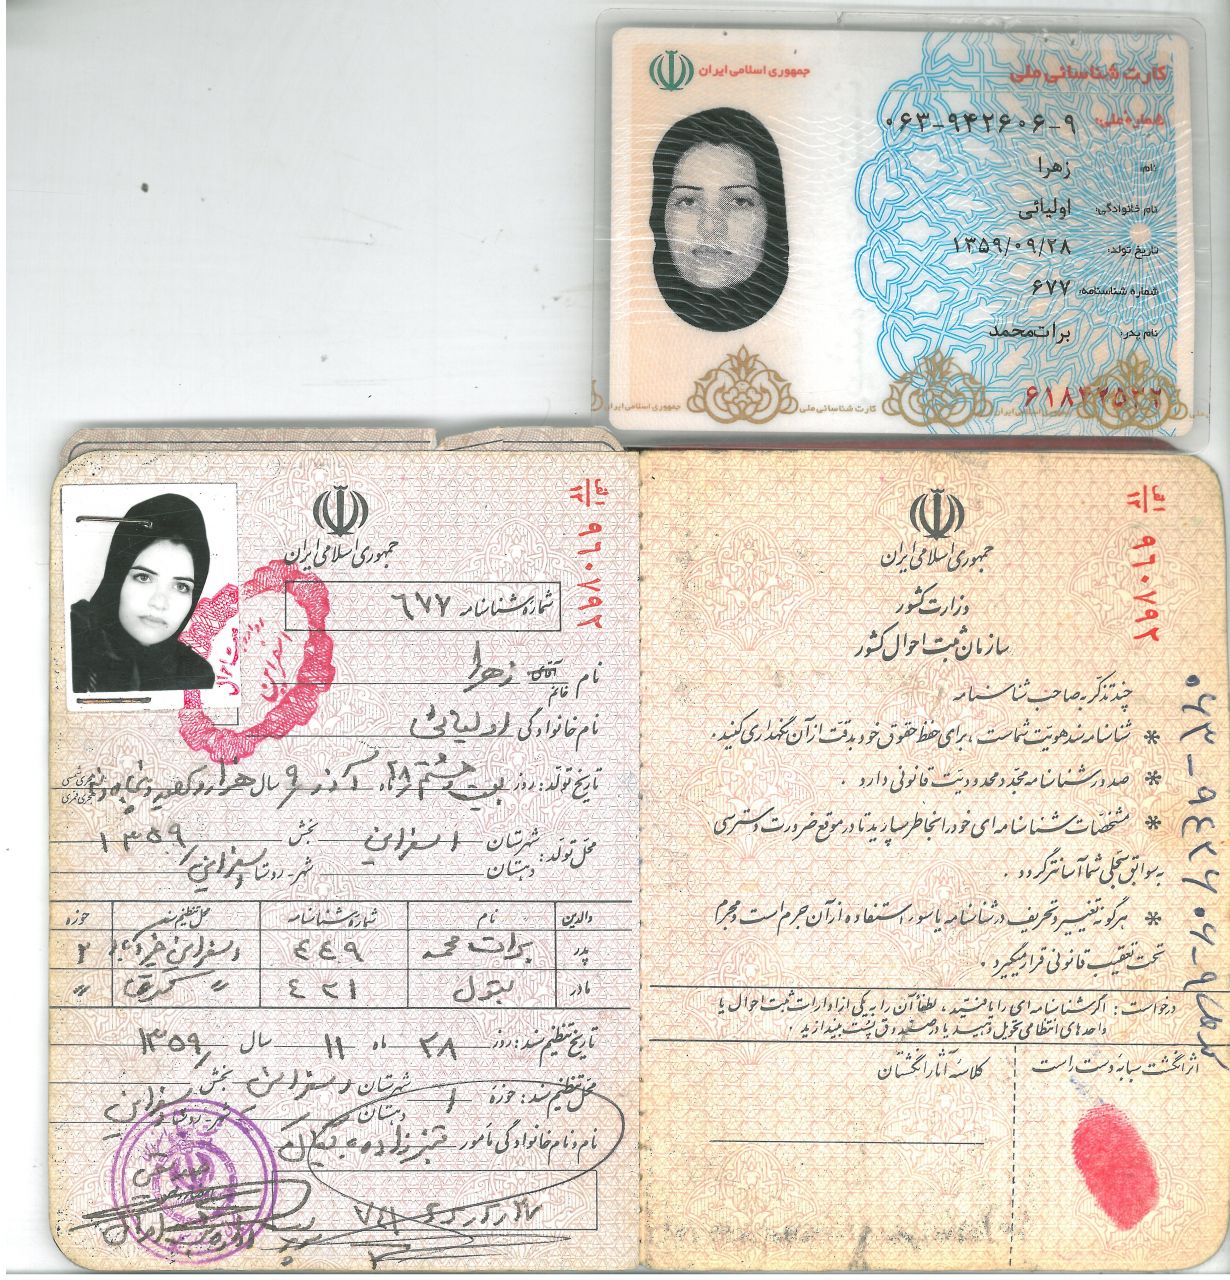 جمهوری اسلامی ایران
کارت شناسائی ملی
شماره ملی: ۰۶۳-۹۴۲۶۰۶-۹
نام: زهرا
نام خانوادگی: اولیائی
تاریخ تولد: ۱۳۵۹/۰۹/۲۸
شماره شناسنامه: ۶۷۷
نام پدر: برات‌محمد
جمهوری اسلامی ایران کارت شناسائی ملی جمهوری اسلامی ایران
الف ۱۲ ۹۶۰۷۹۲
جمهوری اسلامی ایران
وزارت کشور
سازمان ثبت احوال کشور
چند تذکر به صاحب شناسنامه
* شناسنامه سند هویت شماست ، برای حفظ حقوق خود بدقت از آن نگهداری کنید .
* صدور شناسنامه مجدد محدودیت قانونی دارد .
* مشخصات شناسنامه‌ای خود را بخاطر بسپارید تا در موقع ضرورت دسترسی
به سوابق سجلی شما آسانتر گردد .
* هرگونه تغییر و تحریف در شناسنامه یا سوء استفاده از آن جرم است و مجرم
تحت تعقیب قانونی قرار میگیرد .
درخواست : اگر شناسنامه‌ای را یافتید ، لطفاً آن را به یکی از ادارات ثبت احوال یا
واحدهای انتظامی تحویل دهید یا در صندوق پست بیندازید .
اثر انگشت سبابه دست راست
کلاسه آثار انگشتان
۰۶۳-۹۴۲۶۰۶-۹
الف ۱۲ ۹۶۰۷۹۲
جمهوری اسلامی ایران
شماره شناسنامه ۶۷۷
نام آقای خانم زهرا
نام خانوادگی اولیائی
تاریخ تولد : روز بیست و هشتم ۲۸ ماه آذر ۹ سال هزار و سیصد و پنجاه و نه
هجری شمسی
هجری قمری
محل تولد : شهرستان اسفراین بخش ۱۳۵۹
دهستان شهر - روستا اسفراین
والدین نام شماره شناسنامه محل تنظیم سند حوزه
پدر برات محمد ۴۴۹ اسفراین ۲
مادر بتول ۴۲۱ " "
تاریخ تنظیم سند : روز ۲۸ ماه ۱۱ سال ۱۳۵۹
محل تنظیم سند : حوزه ۱ شهرستان اسفراین بخش
دهستان شهر - روستا اسفراین
نام و نام خانوادگی مامور